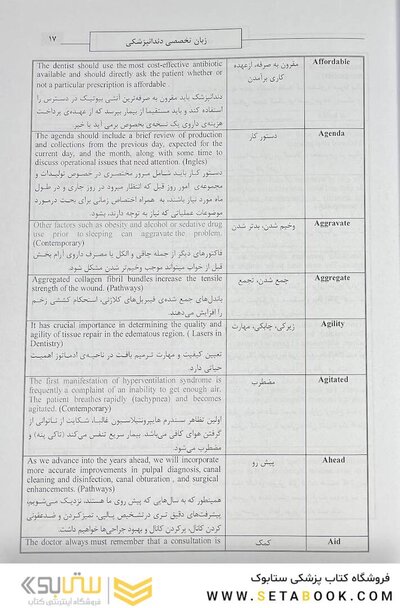 زبان تخصصی دندانپزشکی
۱۷
Affordable
مقرون به صرفه، ازعهده
کاری برآمدن
The dentist should use the most cost-effective antibiotic
available and should directly ask the patient whether or
not a particular prescription is affordable .
دندانپزشک باید مقرون به صرفه‌ترین آنتی بیوتیک در دسترس را
استفاده کند و باید مستقیما از بیمار بپرسد که از عهده‌ی پرداخت
هزینه‌ی داروی یک نسخه‌ی بخصوص برمی آید یا خیر.
Agenda
دستور کار
The agenda should include a brief review of production
and collections from the previous day, expected for the
current day, and the month, along with some time to
discuss operational issues that need attention. (Ingles)
دستور کار باید شامل مرور مختصری در خصوص تولیدات و
مجموعه‌ی امور روز قبل که انتظار میرود در روز جاری و در طول
ماه مورد نیاز باشند، به همراه اختصاص زمانی برای بحث درمورد
موضوعات عملیاتی که نیاز به توجه دارند، بشود.
Aggravate
وخیم شدن، بدتر شدن
Other factors such as obesity and alcohol or sedative drug
use prior to sleeping can aggravate the problem.
(Contemporary)
فاکتورهای دیگر از جمله چاقی و الکل یا مصرف داروی آرام بخش
قبل از خواب میتواند موجب وخیم‌تر شدن مشکل شود.
Aggregate
جمع شدن، تجمع
Aggregated collagen fibril bundles increase the tensile
strength of the wound. (Pathways)
باندل‌های جمع شده‌ی فیبریل‌های کلاژنی، استحکام کششی زخم
را افزایش می‌دهند.
Agility
زیرکی، چابکی، مهارت
It has crucial importance in determining the quality and
agility of tissue repair in the edematous region. ( Lasers in
Dentistry)
تعیین کیفیت و مهارت ترمیم بافت در ناحیه‌ی ادماتوز اهمیت
حیاتی دارد.
Agitated
مضطرب
The first manifestation of hyperventilation syndrome is
frequently a complaint of an inability to get enough air.
The patient breathes rapidly (tachypnea) and becomes
agitated. (Contemporary)
اولین تظاهر سندرم هایپرونتیلاسیون غالبا، شکایت از ناتوانی از
گرفتن هوای کافی می‌باشد. بیمار سریع تنفس می‌کند (تاکی پنه) و
مضطرب می‌شود.
Ahead
پیش رو
As we advance into the years ahead, we will incorporate
more accurate improvements in pulpal diagnosis, canal
cleaning and disinfection, canal obturation , and surgical
enhancements. (Pathways)
همینطور که به سال‌هایی که پیش روی ما هستند، نزدیک می‌شویم،
پیشرفت‌های دقیق تری در تشخیص پالپی، تمیزکردن و ضدعفونی
کردن کانال، پرکردن کانال و بهبود جراحی‌ها خواهیم داشت.
Aid
کمک
The doctor always must remember that a consultation is
ستابوک
فروشگاه اینترنتی کتاب
فروشگاه کتاب پزشکی ستابوک
WWW.SETABOOK.COM